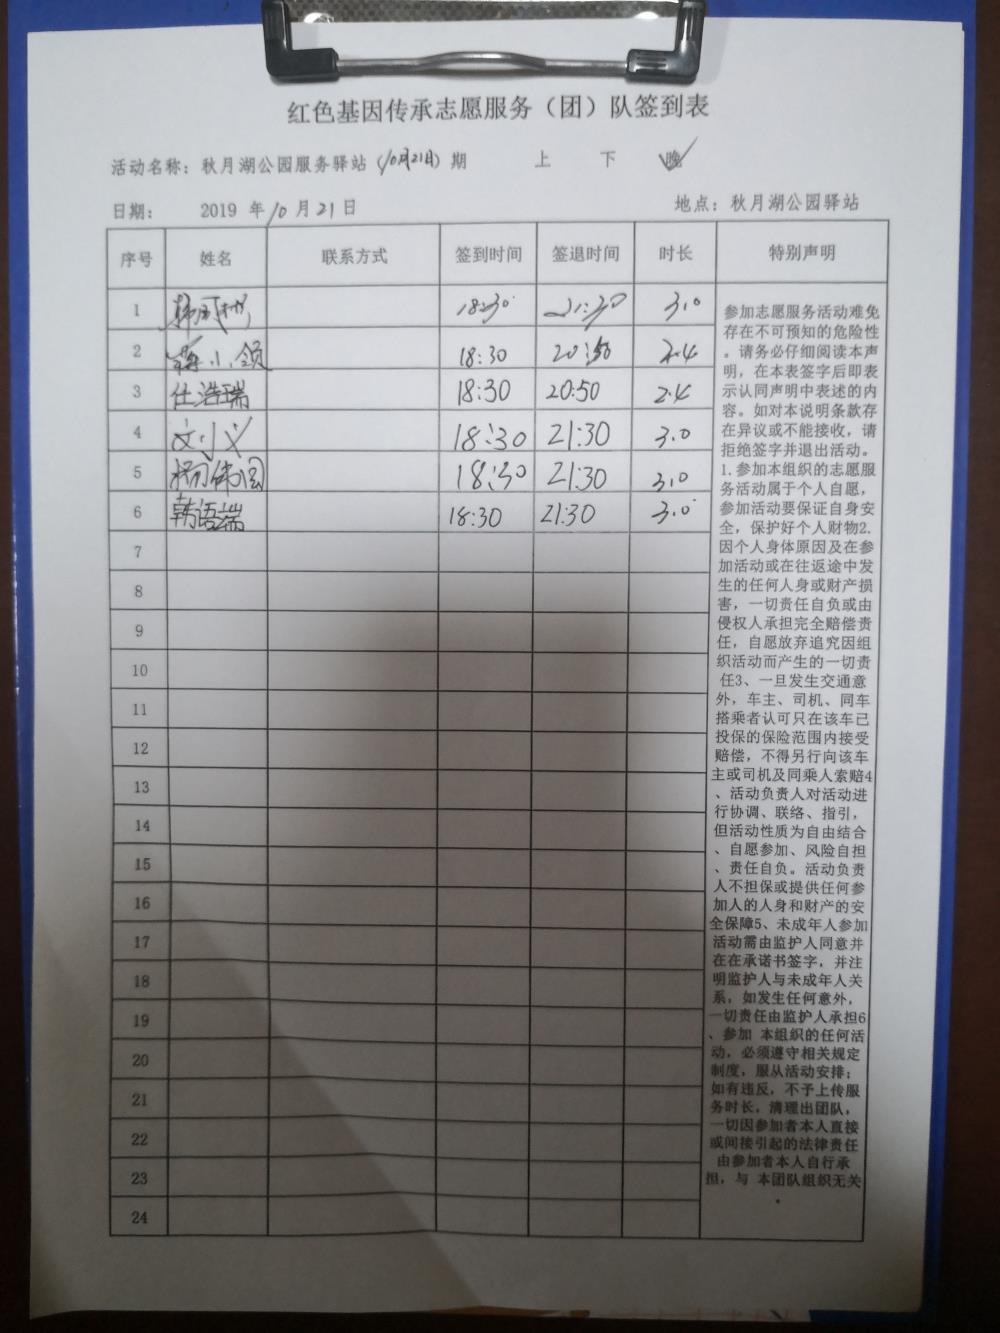 红色基因传承志愿服务（团）队签到表
活动名称：秋月湖公园服务驿站（10月21日）期 上 下 晚
日期： 2019 年10月21日 地点：秋月湖公园驿站
序号 姓名 联系方式 签到时间 签退时间 时长 特别声明
1 18:30 21:30 3.0
2 小领 18:30 20:50 2.4
3 任浩瑞 18:30 20:50 2.4
4 18:30 21:30 3.0
5 杨伟国 18:30 21:30 3.0
6 韩语端 18:30 21:30 3.0
7
8
9
10
11
12
13
14
15
16
17
18
19
20
21
22
23
24
参加志愿服务活动难免
存在不可预知的危险性
。请务必仔细阅读本声
明，在本表签字后即表
示认同声明中表述的内
容。如对本说明条款存
在异议或不能接收，请
拒绝签字并退出活动。
1.参加本组织的志愿服
务活动属于个人自愿，
参加活动要保证自身安
全，保护好个人财物2.
因个人身体原因及在参
加活动或在往返途中发
生的任何人身或财产损
害，一切责任自负或由
侵权人承担完全赔偿责
任，自愿放弃追究因组
织活动而产生的一切责
任3、一旦发生交通意
外，车主、司机、同车
搭乘者认可只在该车已
投保的保险范围内接受
赔偿，不得另行向该车
主或司机及同乘人索赔4
、活动负责人对活动进
行协调、联络、指引，
但活动性质为自由结合
、自愿参加、风险自担
、责任自负。活动负责
人不担保或提供任何参
加人的人身和财产的安
全保障5、未成年人参加
活动需由监护人同意并
在在承诺书签字，并注
明监护人与未成年人关
系，如发生任何意外，
一切责任由监护人承担6
、参加 本组织的任何活
动，必须遵守相关规定
制度，服从活动安排；
如有违反，不予上传服
务时长，清理出团队，
一切因参加者本人直接
或间接引起的法律责任
由参加者本人自行承
担，与 本团队组织无关
。